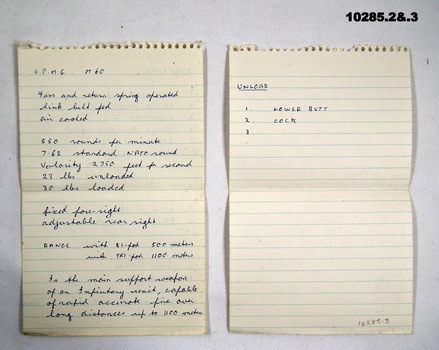 10285.2&.3
G.P.M.G. M60
Gass and return spring operated
link belt fed
air cooled
550 rounds per minute
7.62 standard NATO round
Velocity 2750 feet per second
23 lbs unloaded
30 lbs loaded
fixed fore-sight
adjustable rear sight
RANGE with BI-pod 500 meters
with TRI-pod 1100 meters
Is the main support weapon
of an Infintary unit, capable
of rapid accurate fire over
long distances up to 1100 meters
UNLOAD
1. LOWER BUTT
2. COCK
3.
10285.3